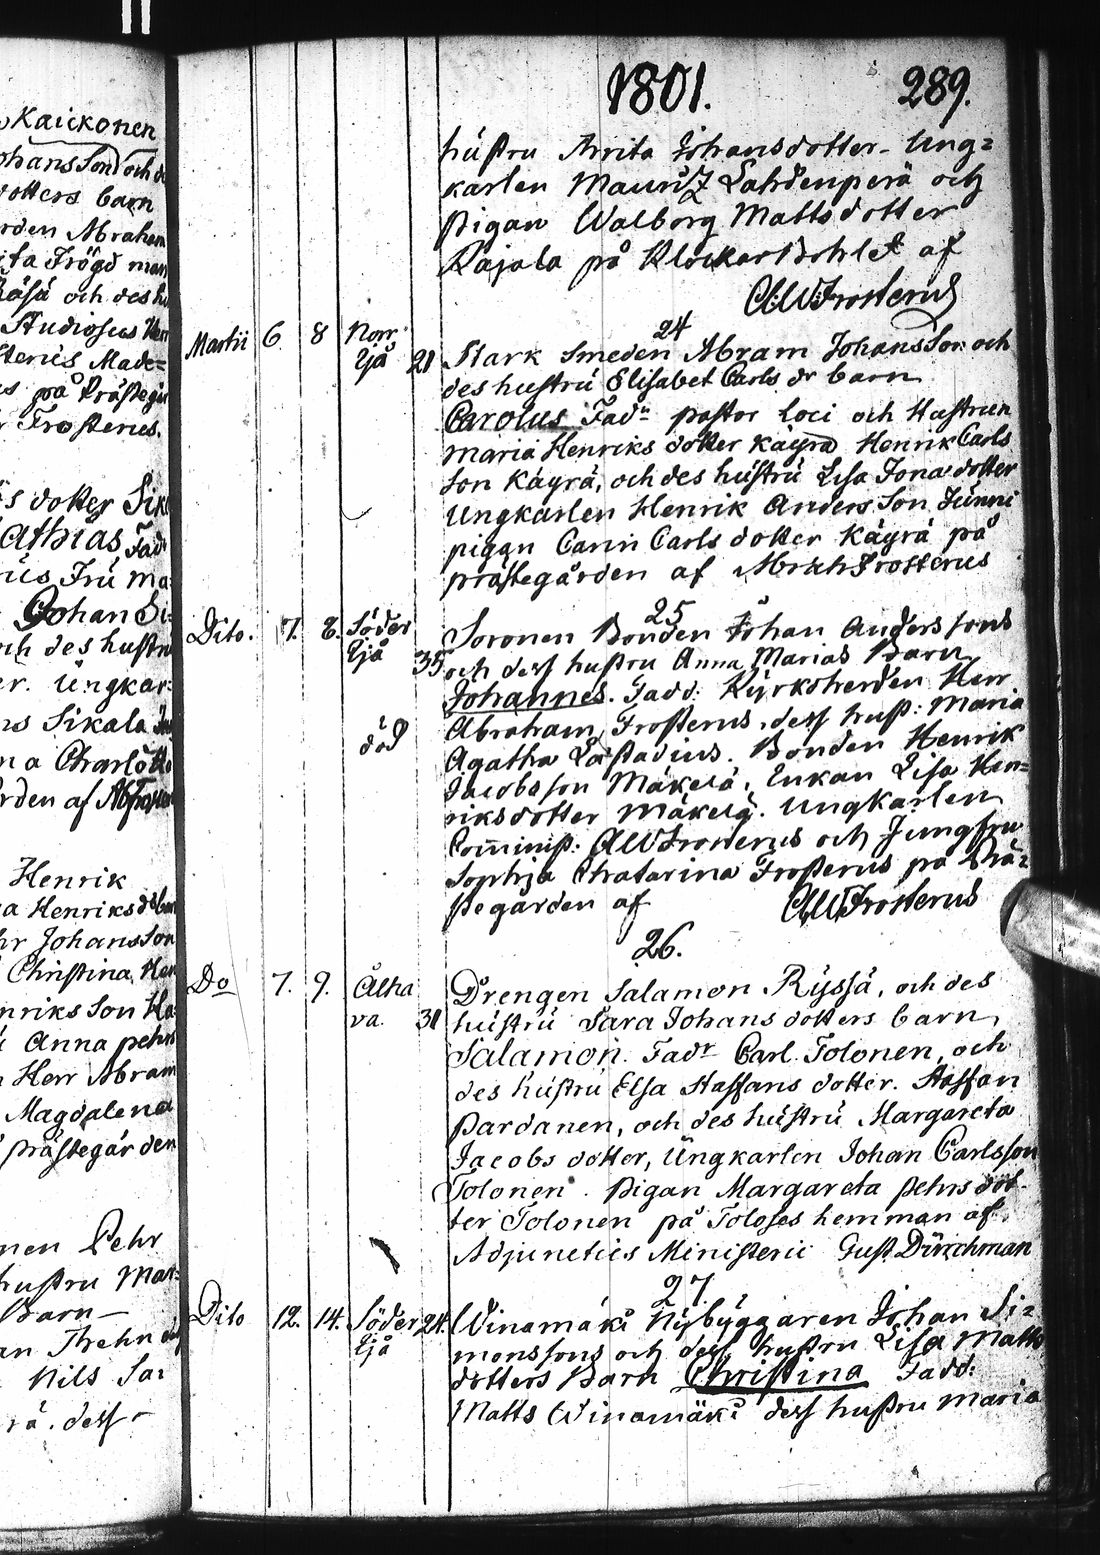 Kaickonen
Johansson och
dotters barn
Abraham
Frögd
och des
Studiosus
Made=
på Präste
Frosterus.
s dotter Sik
Mathias Fad
Frü Ma
Johan Si=
och des hustru
Ungkar=
Sikala
na Charlotta
rden af
Henrik
a Henriks
hr Johansson
Christina
nriks Son
Anna pehrs
Herr Abram
Magdalena
prästegården
nen Pehr
hustru Mar=
Barn
Nils Sa=
rä. dess
1801. 289.
hustru Anita Johansdotter. Ung=
karlen Mauritz Lahdenperä och
Pigan Walborg Mattsdotter
Rajala på Klockarbohlet af
AWFrosterus
24
Martii 6. 8 Norr
Sjå 21 Stark Smeden Abram Johansson och
des hustrü Elisabet Carls dr barn
Carolus Fadr pastor loci och Hustrun
Maria Henriks dotter Käyrä Henrik Carls
Son Käyrä, och des hüstrü Lisa Jona dotter
Ungkarlen Henrik Anders Son Junni
pigan Carin Carls dotter Käyrä på
prästegården af Abrah Frosterus
25
Dito. 7. 8. Söder
Sjå 35 Soronen Bonden Johan Anderssons
och dess hustru Anna Marias Barn
Johannes. Fadd: Kyrkoherden Herr
död Abraham Frosterus, dess hust: Maria
Agatha Læstadius. Bonden Henrik
Jacobsson Mäkelä, Enkan Lisa Hen=
riksdotter Mäkelä. Ungkarlen
Cominist: AWFrosterus och Jungfru
Sophia Chatarina Frosterus på Prä=
stegården af AWFrosterus
26.
Do 7. 9. Alha
va. 31 Drengen Salamon Ryssä, och des
hustrü Sara Johans dotters barn,
Salamon. Fadr Carl Tolonen, och
des hustrü Elsa Staffans dotter. Staffan
Pardanen, och des hüstrü Margareta
Jacobs dotter, Üngkarlen Johan Carlsson
Tolonen. Pigan Margareta pehrs dot-
ter Tolonen på Toloses hemman af
Adjunctus Ministerii Gust. Dürchman
27.
Dito 12. 14. Söder
Sjå 24. Winamäki Nybyggaren Johan Si=
monssons och dess hustru Lisa Matts
dotters Barn Christina Fadd:
Matts Winamäki dess hustru Maria